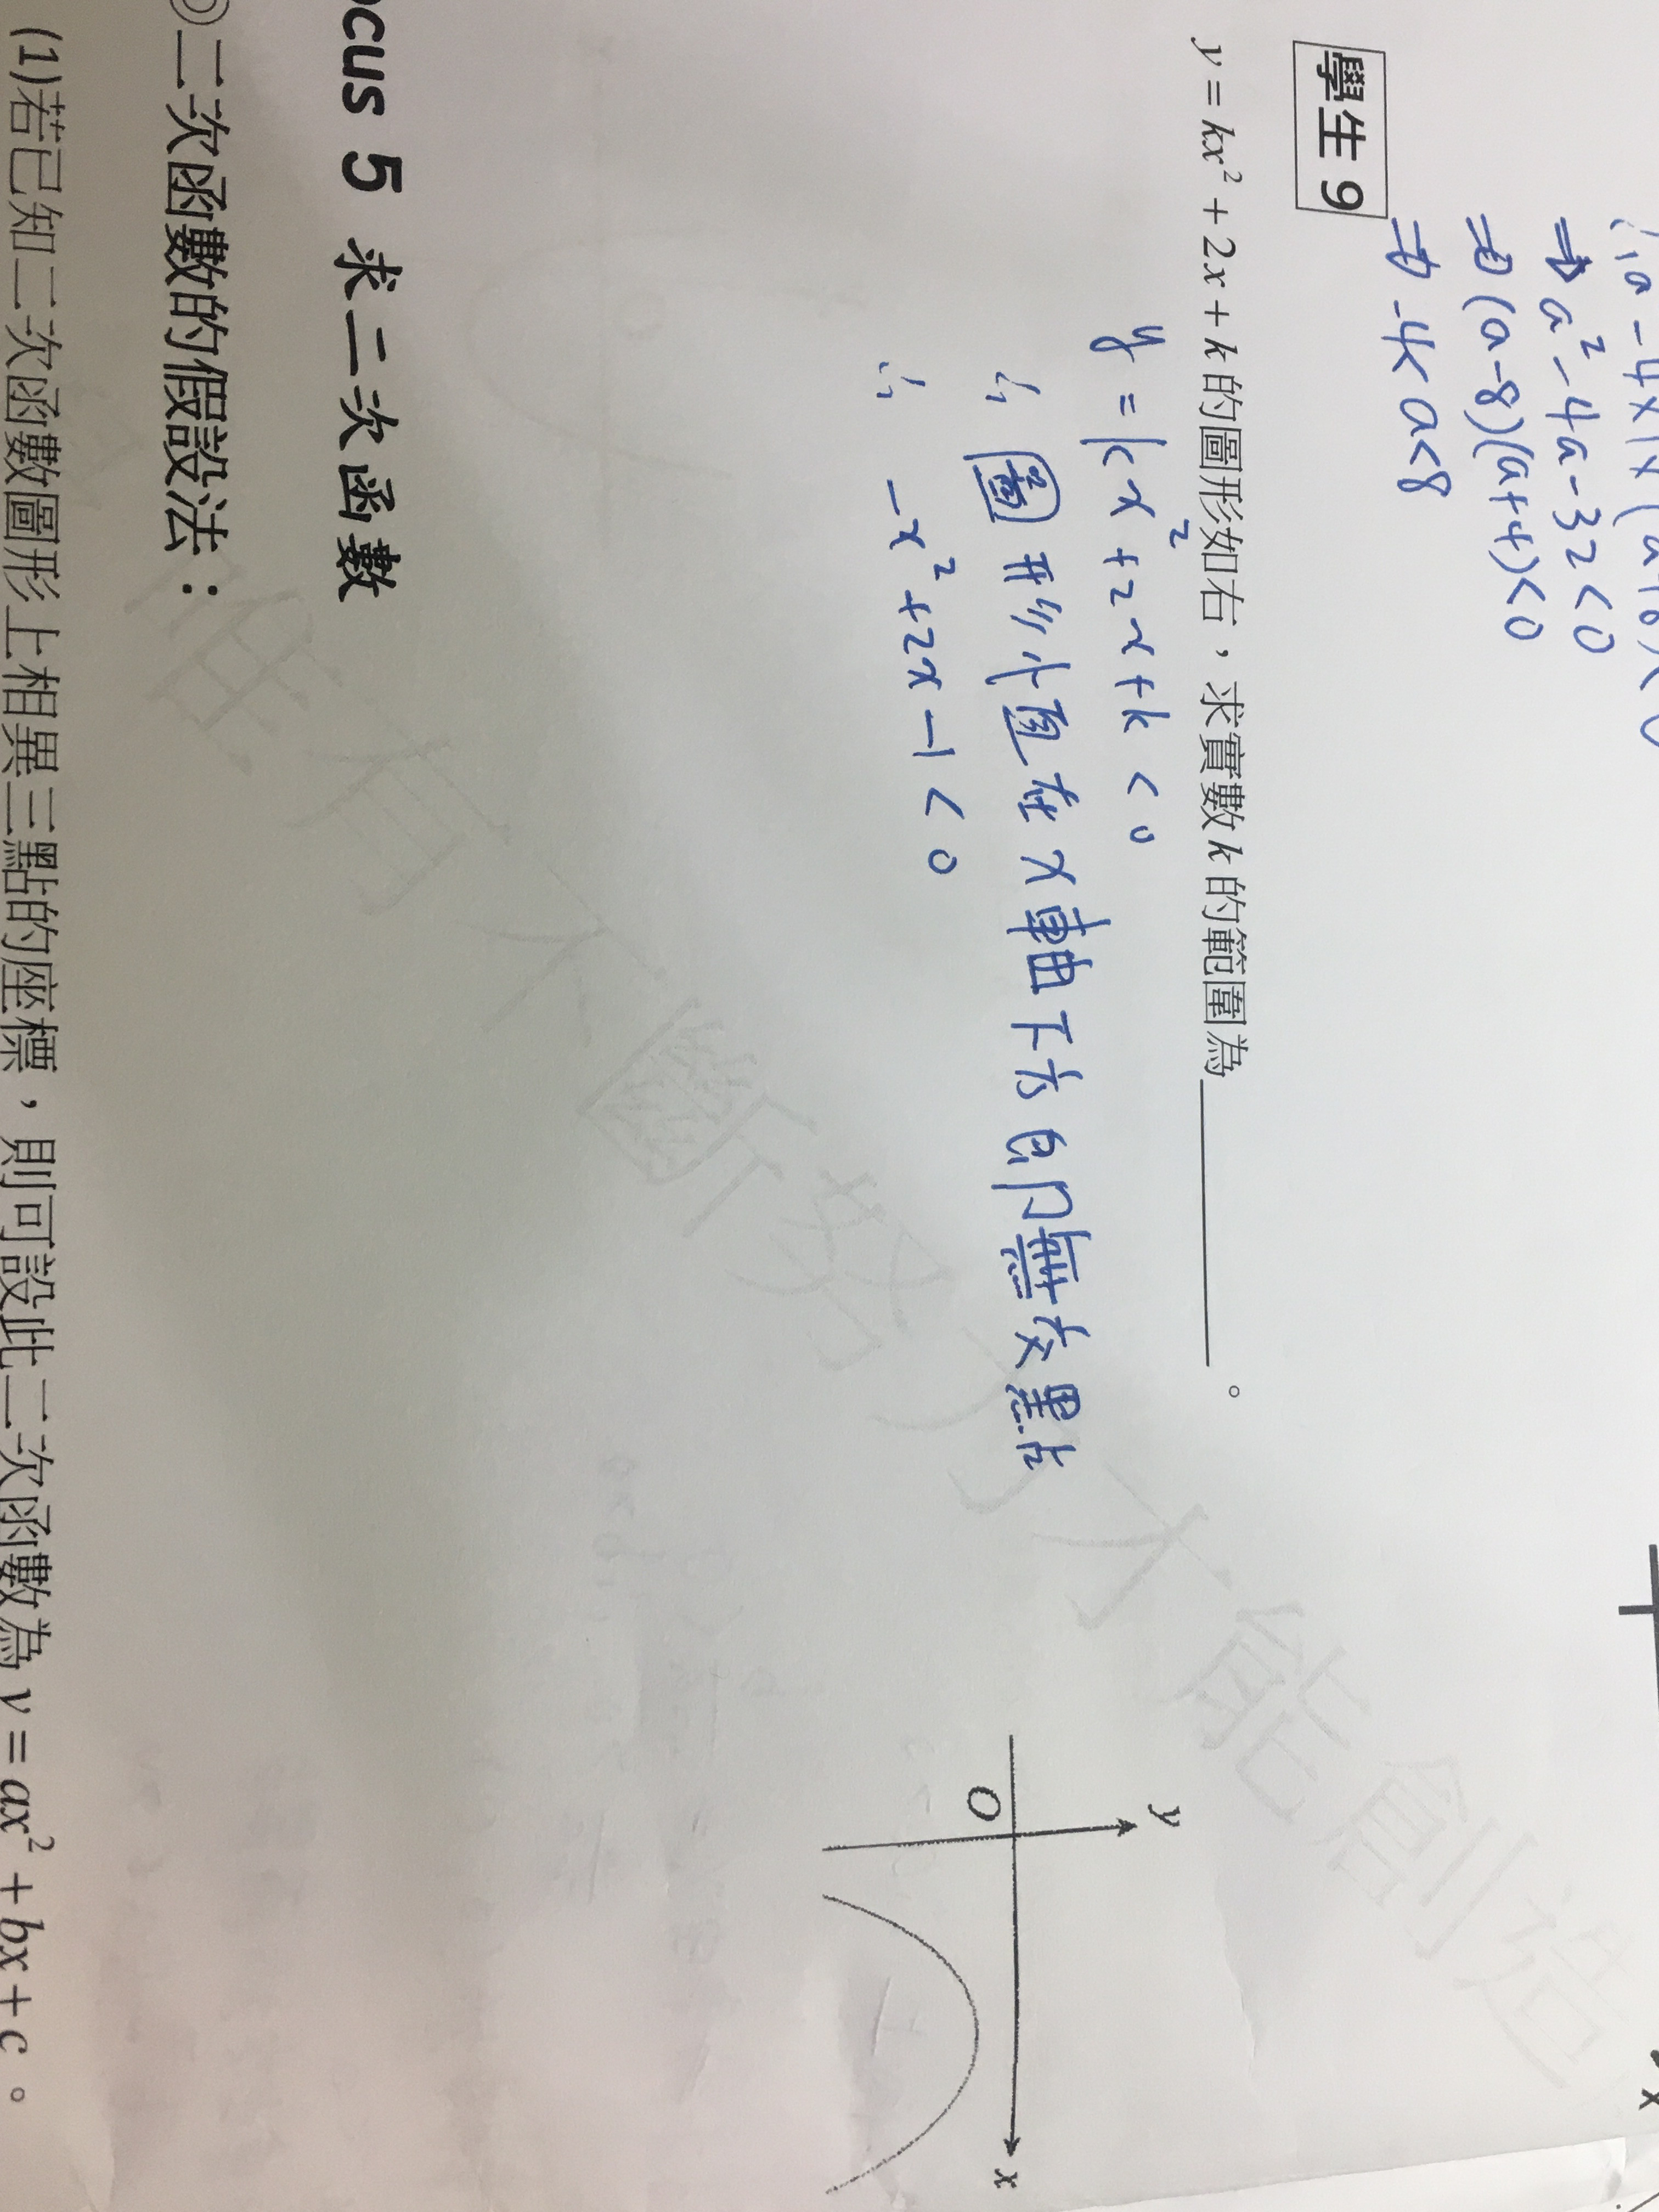 ⇒ a² - 4a - 32 < 0
⇒ (a-8)(a+4) < 0
⇒ -4 < a < 8
學生 9
y = kx² + 2x + k 的圖形如右，求實數 k 的範圍為＿＿＿＿＿＿。
y = kx² + 2x + k < 0
∵ 圖形恆在 x 軸下方的無交點
∴ -x² + 2x - 1 < 0
y
O
x
x
ocus 5 求二次函數
◎二次函數的假設法：
(1)若已知二次函數圖形上相異三點的座標，則可設此二次函數為 y = ax² + bx + c 。